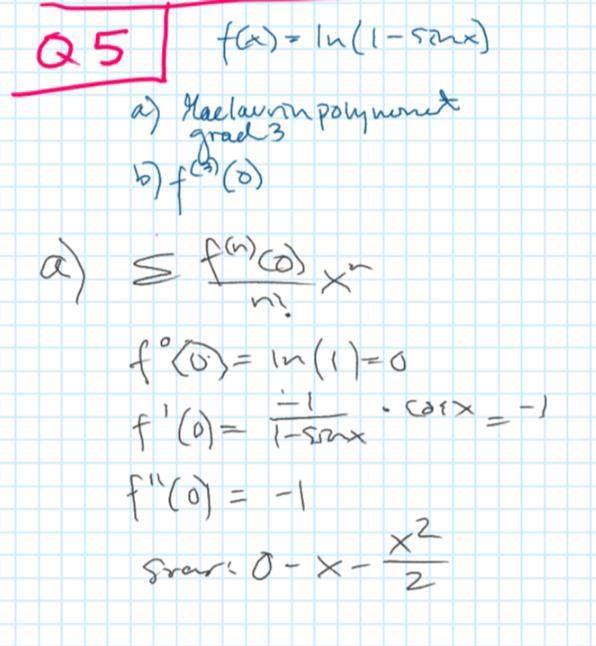 Q5
f(x) = ln(1-sinx)
a) Maclaurinpolynomet
grad 3
b) f⁽³⁾(0)
a) Σ f⁽ⁿ⁾(0)/n! xⁿ
f⁰(0) = ln(1) = 0
f'(0) = -1/(1-sinx) · cosx = -1
f''(0) = -1
svar: 0 - x - x²/2